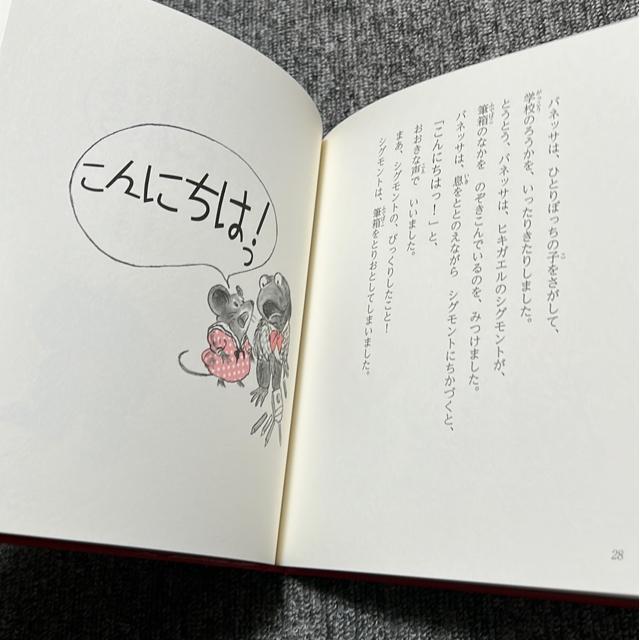 バネッサは、ひとりぼっちの子をさがして、
学校のろうかを、いったりきたりしました。
とうとう、バネッサは、ヒキガエルのシグモントが、
筆箱のなかを のぞきこんでいるのを、みつけました。
バネッサは、息をととのえながら シグモントにちかづくと、
「こんにちはっ！」と、
おおきな声で いいました。
まあ、シグモントの、びっくりしたこと！
シグモントは、筆箱をとりおとしてしまいました。
28
こんにちはっ！